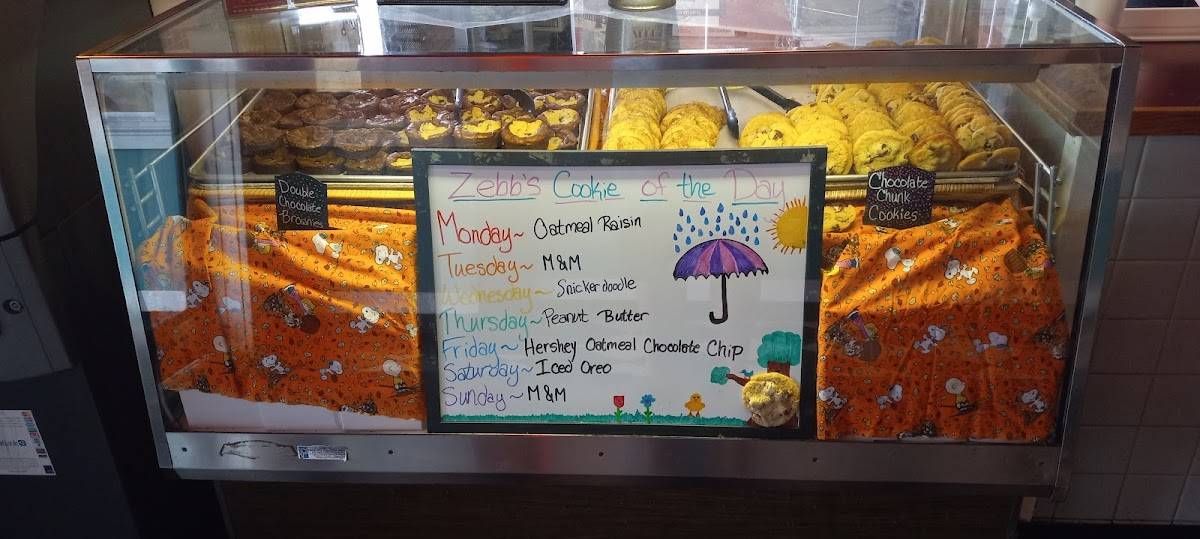 Zebb's Cookie of the Day
Monday~ Oatmeal Raisin
Tuesday~ M&M
Wednesday~ Snickerdoodle
Thursday~ Peanut Butter
Friday~ Hershey Oatmeal Chocolate Chip
Saturday~ Iced Oreo
Sunday~ M&M
Double
Chocolate
Brownie
Chocolate
Chunk
Cookies